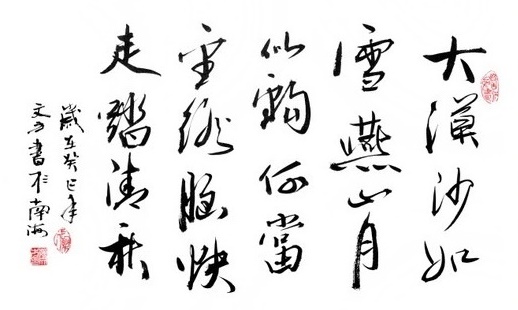 大漠沙如
雪燕山月
似鉤何當
金絡腦快
走踏清秋
歲在癸巳年
書於南海